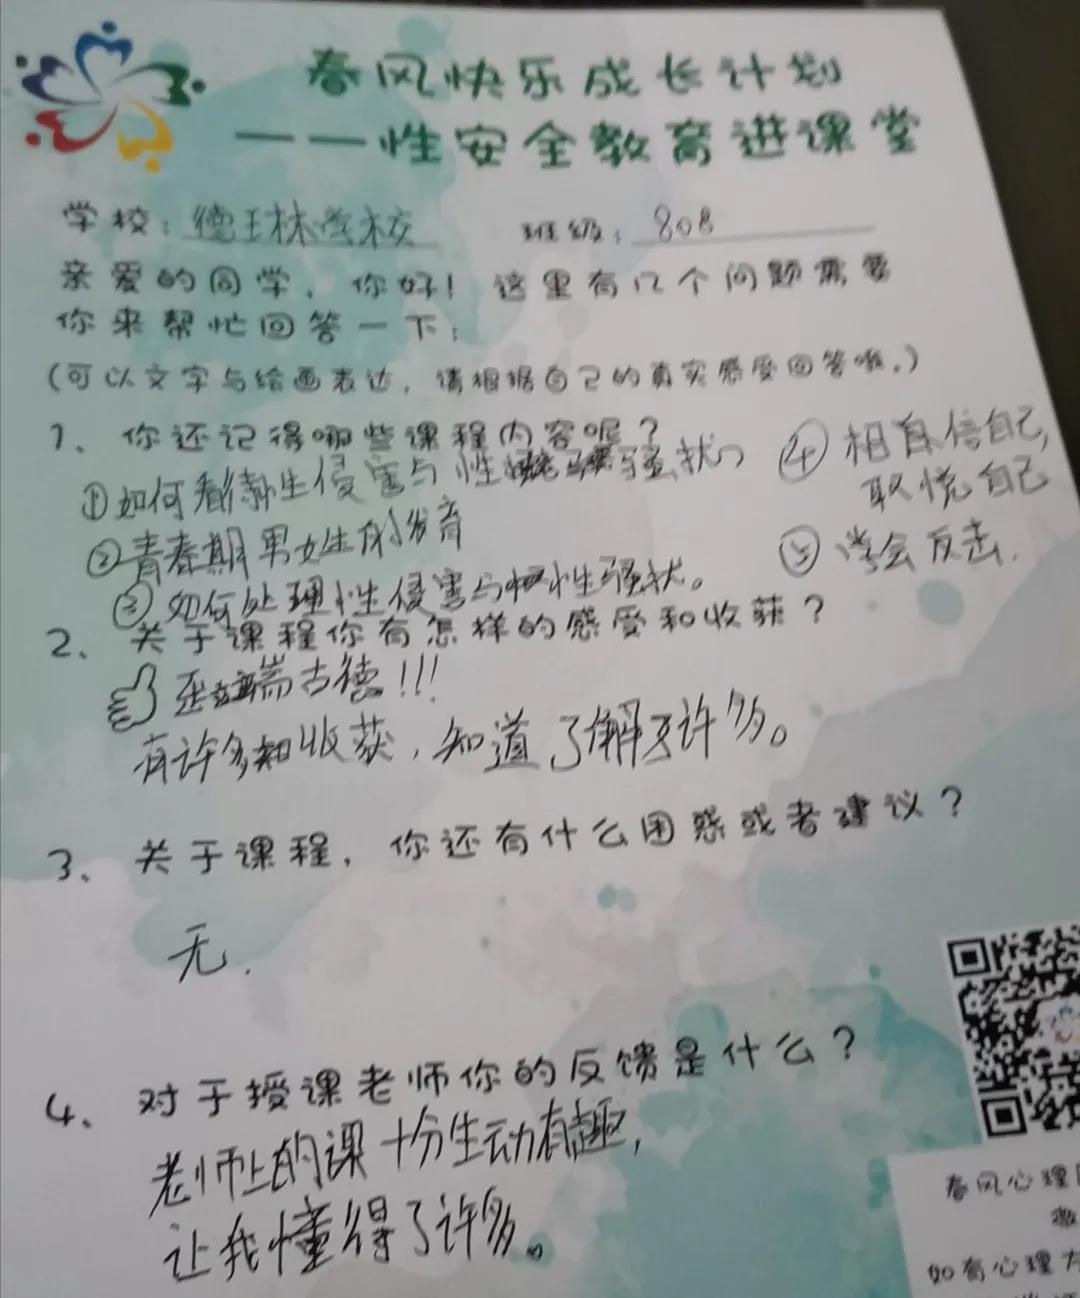 春风快乐成长计划
——性安全教育进课堂
学校：德珪林学校 班级：808
亲爱的同学，你好！这里有几个问题需要
你来帮忙回答一下：
(可以文字与绘画表达，请根据自己的真实感受回答哦。)
1、你还记得哪些课程内容呢？
①如何看待性侵害与性骚扰
②青春期男女生的发育
③如何处理性侵害与性骚扰。
④相自信自己,
取悦自己
⑤学会反击.
2、关于课程你有怎样的感受和收获？
歪瑞古德!!!
有许多收获，知道了解了许多。
3、关于课程，你还有什么困惑或者建议？
无.
4、对于授课老师你的反馈是什么？
老师上的课十分生动有趣,
让我懂得了许多。
春风心理
微
如有心理